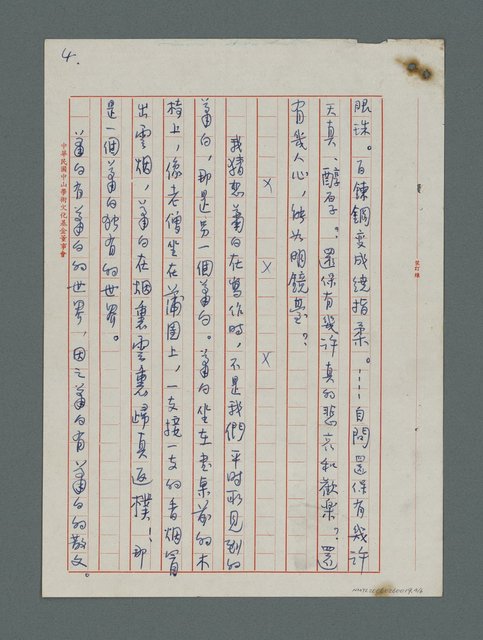 4.
眼珠。百鍊鋼变成繞指柔。……自問還保有幾許
天真、醇厚。還保有幾許真的悲哀和歡樂？還
有幾人心，能如明鏡
× × ×
我猜想蕭白在寫作時，不是我們平時所見到的
蕭白，那是另一個蕭白。蕭白坐在書桌前的木
椅上，像老僧坐在蒲團上，一支接一支的香烟冒
出雲烟，蕭白在烟裏雲裏歸真返樸！那
是一個蕭白独有的世界。
蕭白有蕭白的世界，因之蕭白有蕭白的散文。
中華民國中山學術文化基金董事會
裝訂線